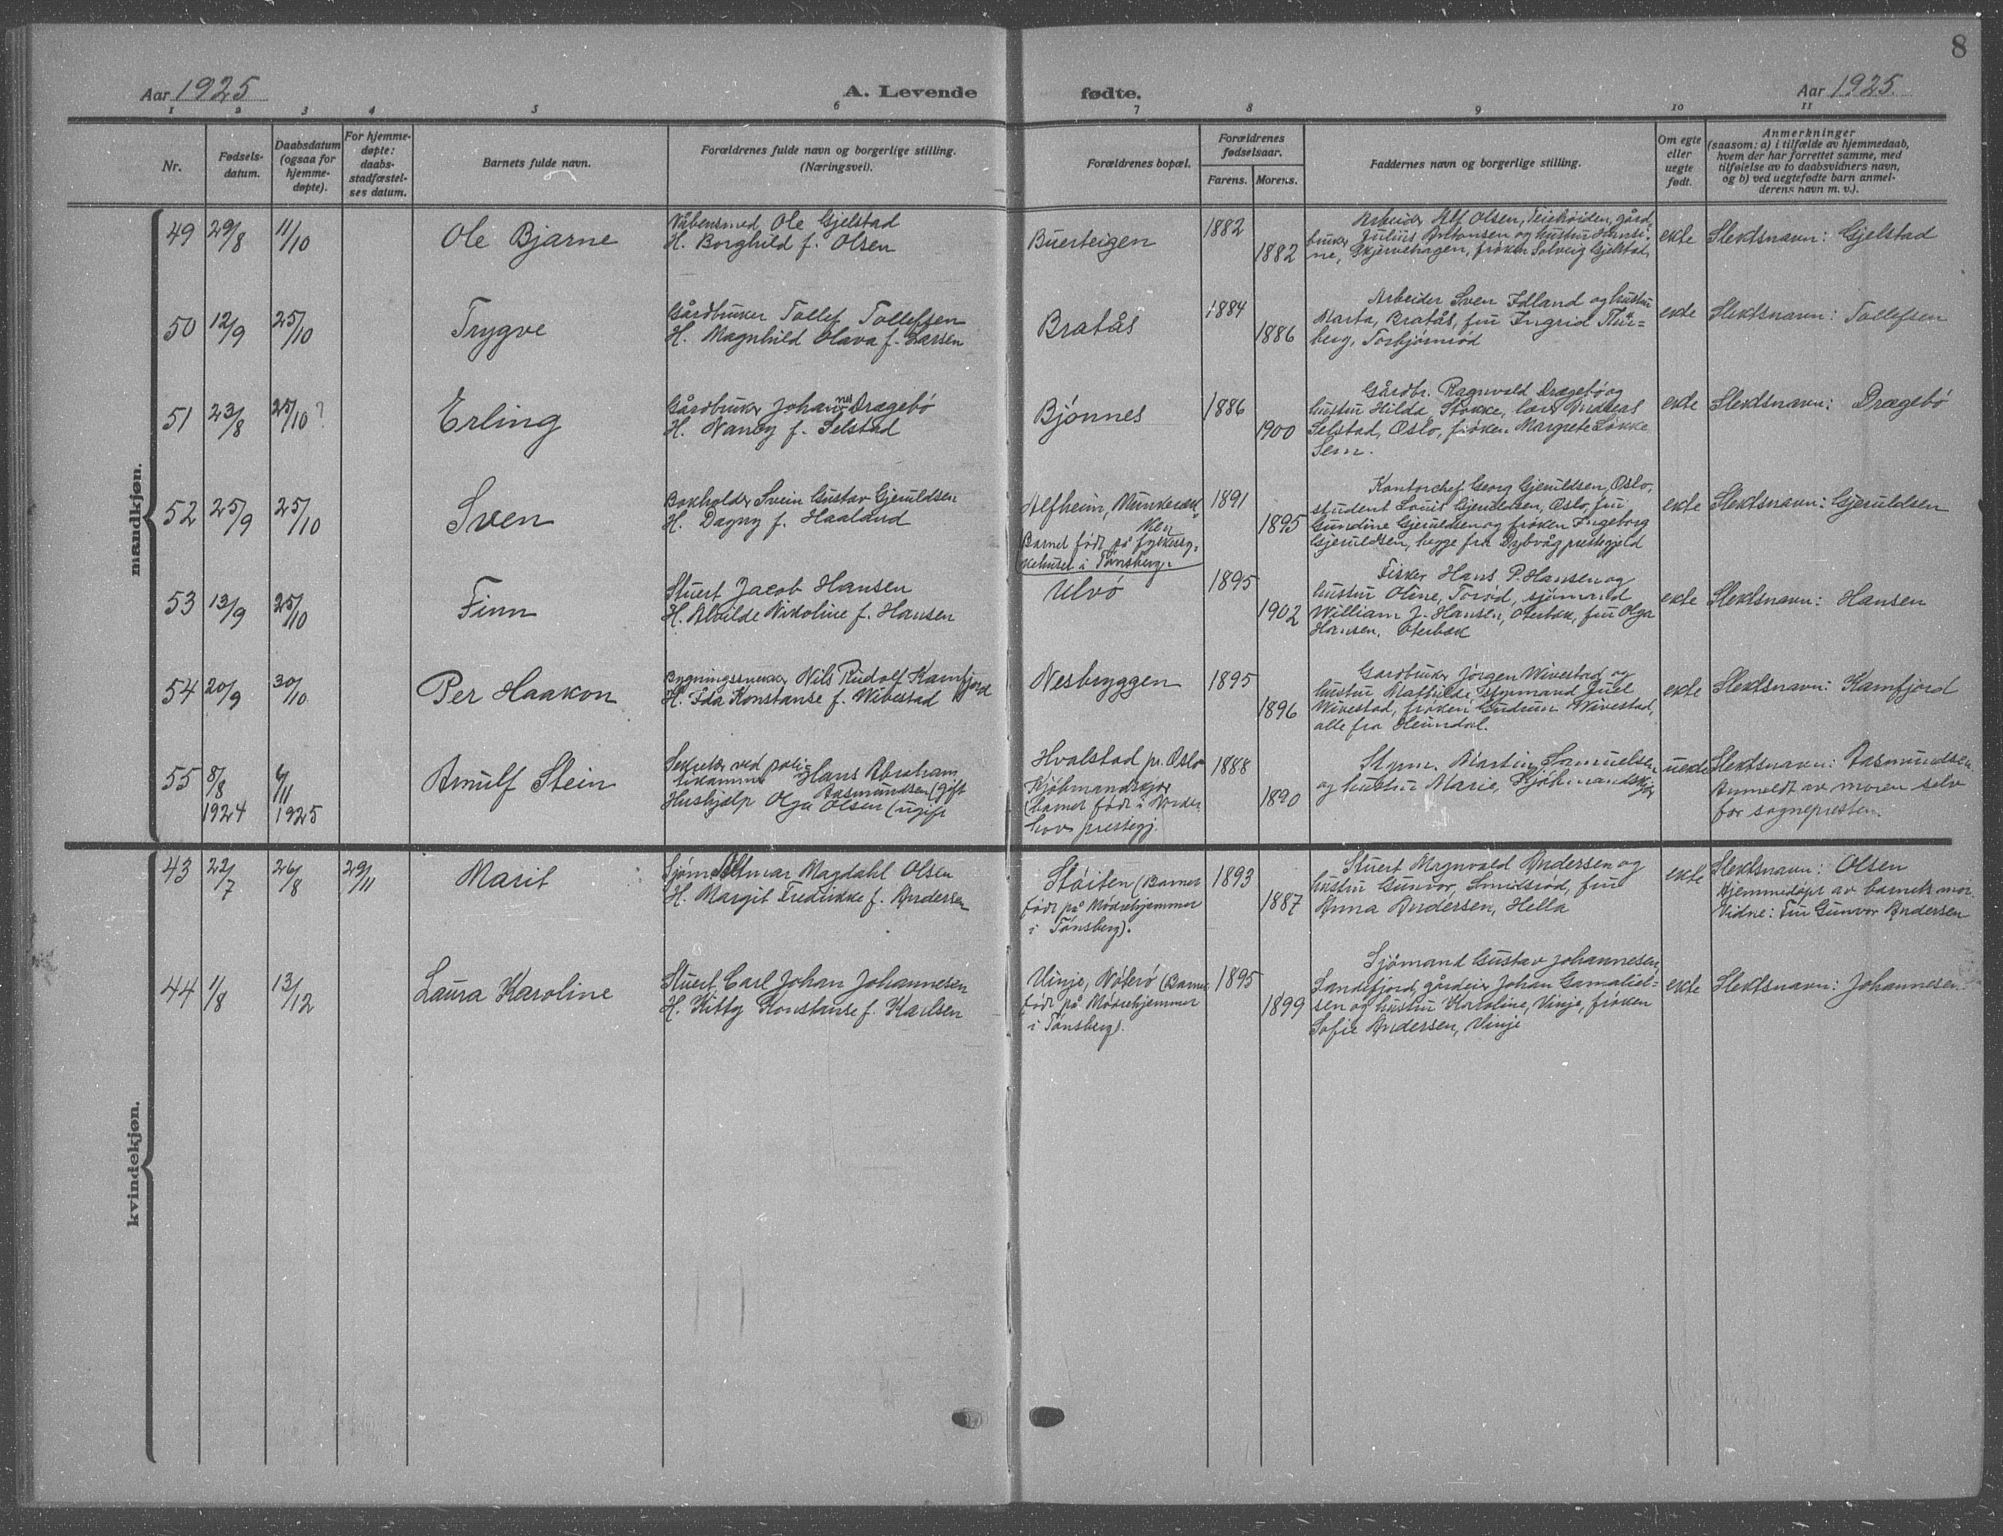 8
Aar 1925
A. Levende fødte.
Aar 1925
1 2 3 4 5 6 7 8 9 10 11
Nr.
Fødsels-
datum.
Daabsdatum
(ogsaa for
hjemme-
døpte).
For hjemme-
døpte:
daabs-
stadfæstel-
ses datum.
Barnets fulde navn.
Forældrenes fulde navn og borgerlige stilling.
(Næringsvei).
Forældrenes bopæl.
Forældrenes
fødselsaar.
Farens. Morens.
Faddernes navn og borgerlige stilling.
Om egte
eller
uegte
født.
Anmerkninger
(saasom: a) i tilfælde av hjemmedaab,
hvem der har forrettet samme, med
tilføielse av to daabsvidners navn,
og b) ved uegtefødte barn anmel-
derens navn m. v.).
mandkjøn.
49 29/8 11/10 Ole Bjarne
Våbensmed Ole Gjelstad
H. Borghild f. Olsen
Buerteigen
1882
1882
Arbeider Alf Olsen, Teiehöiden, gård
bruker Julius Antonsen og hustru Hansi-
ne, Skjervehagen, frøken Solveig Gjelstad,
ekte
Slektsnavn: Gjelstad
50 12/9 25/10 Trygve
Gårdbruker Tollef Tollefsen
H. Magnhild Olava f. Larsen
Bratås
1884
1886
Arbeider Sven Edland og hustru
Marta, Bratås, fru Ingrid Thu-
berg, Torbjørnrød
ekte
Slektsnavn: Tollefsen
51 23/8 25/10? Erling
Gårdbruker Johannes Drægebø
H. Nancy f. Selstad
Bjønnes
1886
1900
Gårdbr. Ragnvald Drægebø og
hustru Hilda, Stokke, lærer Anders
Selstad, Oslo, frøken Margrete Løkke
Sem.
ekte
Slektsnavn: Drægebø
52 25/9 25/10 Sven
Bokholder Svein Gustav Gjeruldsen
H. Dagny f. Haaland
Alfheim, Munkerek-
ken
Barnet født på fylkessy-
kehuset i Tønsberg.
1891
1895
Kontorchef Georg Gjeruldsen, Oslo,
student Louis Gjeruldsen, Oslo, fru
Gundine Gjeruldsen og frøken Ingeborg
Gjeruldsen, begge fra Dybvåg prestegjeld
ekte
Slektsnavn: Gjeruldsen
53 13/9 25/10 Finn
Stuert Jacob Hansen
H. Alvilde Nikoline f. Hansen
Ulvø
1895
1902
Fisker Hans P. Hansen og
hustru Oline, Torød, sjømand
William J. Hansen, Oterbæk, fru Olga
Hansen, Oterbæk
ekte
Slektsnavn: Hansen
54 20/9 30/10 Per Haakon
Bygningssnekker Nils Rudolf Kamfjord
H. Ida Konstanse f. Wivestad
Nesbryggen
1895
1896
Gardbruker Jørgen Wivestad og
hustru Mathilde, styrmand Juel
Wivestad, frøken Gudrun Wivestad,
alle fra Heimdal.
ekte
Slektsnavn: Kamfjord
55 8/8 1924 6/11 1925 Arnulf Stein
Sekretær ved poli-
tikammer Hans Abraham
Rasmundsen (gift
Hushjælp Olga Olsen (ugift
Hvalstad pr. Oslo
Kjøbmandskjær
(barnet født i Norder-
hov prestegj.
1888
1890
Styrm. Martin Samuelsen
og hustru Marie, Kjøbmandskjær
uekte
Slektsnavn: Rasmundsen
Anmeldt av moren selv
for sognepresten.
kvindekjøn.
43 22/7 26/8 29/11 Marit
Sjøm. Magdahl Olsen
H. Margit Fredrikke f. Andersen
Støiten (Barnet
født på Mødrehjemmet
i Tønsberg).
1893
1887
Stuert Magnvald Andersen og
hustru Gunvor, Smidsrød, fru
Anna Andersen, Hella
ekte
Slektsnavn: Olsen
Hjemmedøpt av barnets mor
Vidne: Fru Gunvor Andersen
44 1/8 13/12 Laura Karoline
Stuert Carl Johan Johannesen
H. Kitty Konstanse f. Karlsen
Vinje, Nøterø (Barnet
født på Mødrehjemmet
i Tønsberg).
1895
1899
Sjömand Gustav Johannesen,
Sandefjord, gårdeier Johan Gamaliel-
sen og hustru Karoline, Vinje, frøken
Sofie Andersen, Vinje
ekte
Slektsnavn: Johannesen